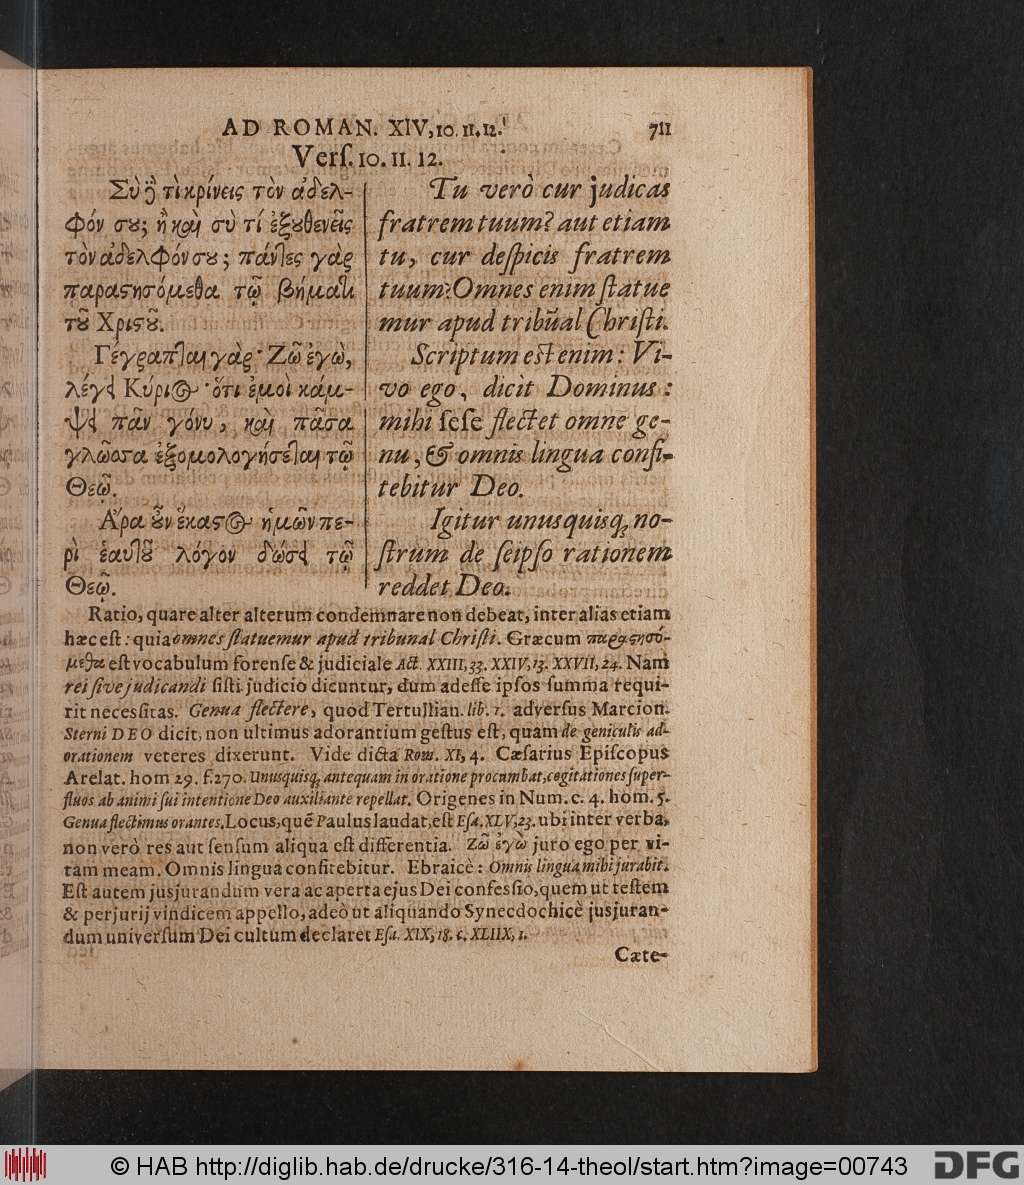 AD ROMAN. XIV, 10. 11. 12. 711
Verſ. 10. 11. 12.
Σὺ δὲ τὶ κρίνεις τὸν ἀδελ-
φόν σου; ἢ καὶ σὺ τί ἐξουθενεῖς
τὸν ἀδελφόν σου; πάντες γὰρ
παραστησόμεθα τῷ βήματι
τοῦ Χριστοῦ.
Γέγραπται γὰρ· Ζῶ ἐγὼ,
λέγει Κύριος· ὅτι ἐμοὶ κάμ-
ψει πᾶν γόνυ, καὶ πᾶσα
γλῶσσα ἐξομολογήσεται τῷ
Θεῷ.
Ἄρα οὖν ἕκαστος ἡμῶν πε-
ρὶ ἑαυτοῦ λόγον δώσει τῷ
Θεῷ.
Tu verò cur judicas
fratrem tuum? aut etiam
tu, cur deſpicis fratrem
tuum? Omnes enim ſtatue
mur apud tribunal Chriſti.
Scriptum eſt enim: Vi-
vo ego, dicit Dominus:
mihi ſeſe flectet omne ge-
nu, & omnis lingua confi-
tebitur Deo.
Igitur unusquisq; no-
ſtrûm de ſeipſo rationem
reddet Deo.
Ratio, quare alter alterum condemnare non debeat, inter alias etiam
hæc eſt: quia omnes ſtatuemur apud tribunal Chriſti. Græcum παραστησό-
μεθα eſt vocabulum forenſe & judiciale Act. XXIII, 33. XXIV, 13. XXVII, 24. Nam
rei ſive judicandi ſiſti judicio dicuntur, dum adeſſe ipſos ſumma requi-
rit neceſsitas. Genua flectere, quod Tertullian. lib. 1. adverſus Marcion.
Sterni DEO dicit, non ultimus adorantium geſtus eſt, quam de geniculis ad-
orationem veteres dixerunt. Vide dicta Rom. XI, 4. Cæſarius Epiſcopus
Arelat. hom 29. f. 270. Unusquisq; antequam in oratione procumbat, cogitationes ſuper-
fluos ab animi ſui intentione Deo auxiliante repellat. Origenes in Num. c. 4. hom. 5.
Genua flectimus orantes. Locus, quẽ Paulus laudat, eſt Eſa. XLV, 23. ubi inter verba,
non verò res aut ſenſum aliqua eſt differentia. Ζῶ ἐγὼ juro ego per vi-
tam meam. Omnis lingua confitebitur. Ebraicè: Omnis lingua mihi jurabit.
Eſt autem jusjurandum vera ac aperta ejus Dei confeſsio, quem ut teſtem
& perjurij vindicem appello, adeò ut aliquando Synecdochicè jusjuran-
dum univerſum Dei cultum declaret Eſa. XIX, 18. c. XLIIX, 1.
Cæte-
© HAB http://diglib.hab.de/drucke/316-14-theol/start.htm?image=00743
DFG